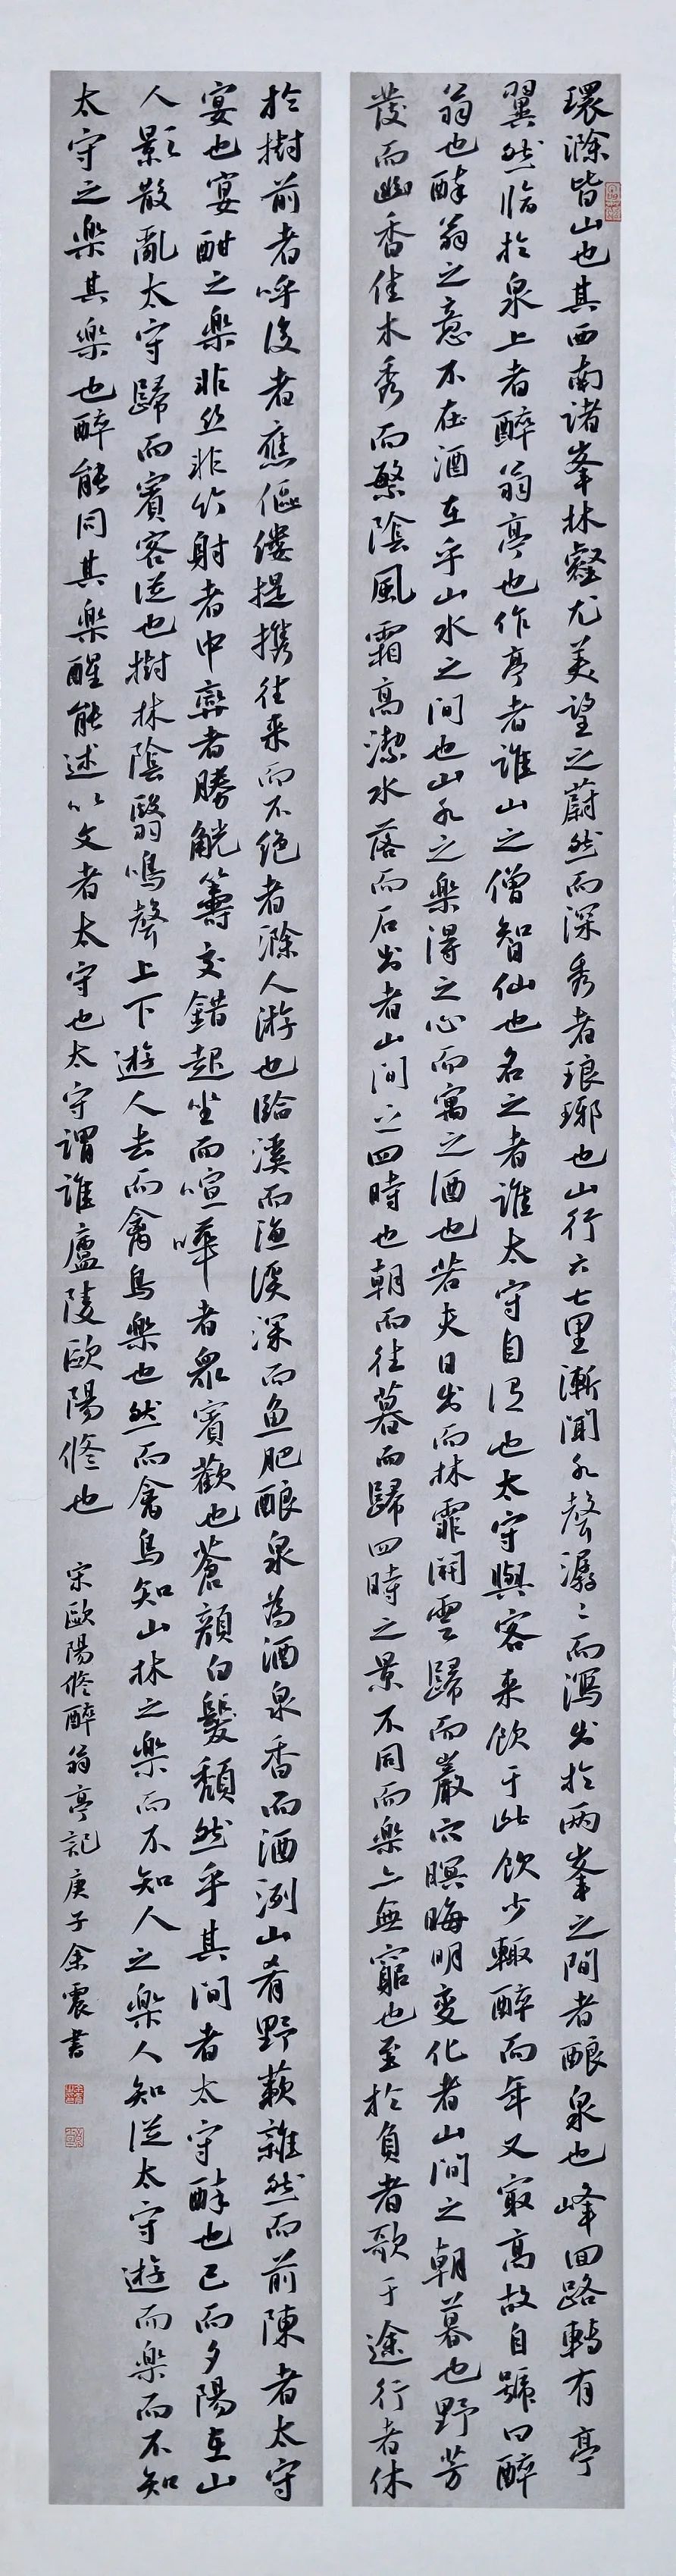 環滁皆山也其西南諸峯林壑尤美望之蔚然而深秀者琅琊也山行六七里漸聞水聲潺〻而瀉出於兩峯之間者釀泉也峰回路轉有亭
翼然臨於泉上者醉翁亭也作亭者誰山之僧智仙也名之者誰太守自謂也太守與客來飲于此飲少輒醉而年又最高故自號曰醉
翁也醉翁之意不在酒在乎山水之間也山水之樂得之心而寓之酒也若夫日出而林霏開雲歸而巖穴暝晦明變化者山間之朝暮也野芳
發而幽香佳木秀而繁陰風霜高潔水落而石出者山間之四時也朝而往暮而歸四時之景不同而樂亦無窮也至於負者歌于途行者休
於樹前者呼後者應傴僂提攜往來而不絕者滁人游也臨溪而漁溪深而魚肥釀泉為酒泉香而酒洌山肴野蔌雜然而前陳者太守
宴也宴酣之樂非絲非竹射者中弈者勝觥籌交錯起坐而喧嘩者眾賓歡也蒼顏白髮頹然乎其間者太守醉也已而夕陽在山
人影散亂太守歸而賓客從也樹林陰翳鳴聲上下遊人去而禽鳥樂也然而禽鳥知山林之樂而不知人之樂人知從太守遊而樂而不知
太守之樂其樂也醉能同其樂醒能述以文者太守也太守謂誰廬陵歐陽修也 宋歐陽修醉翁亭記庚子余震書